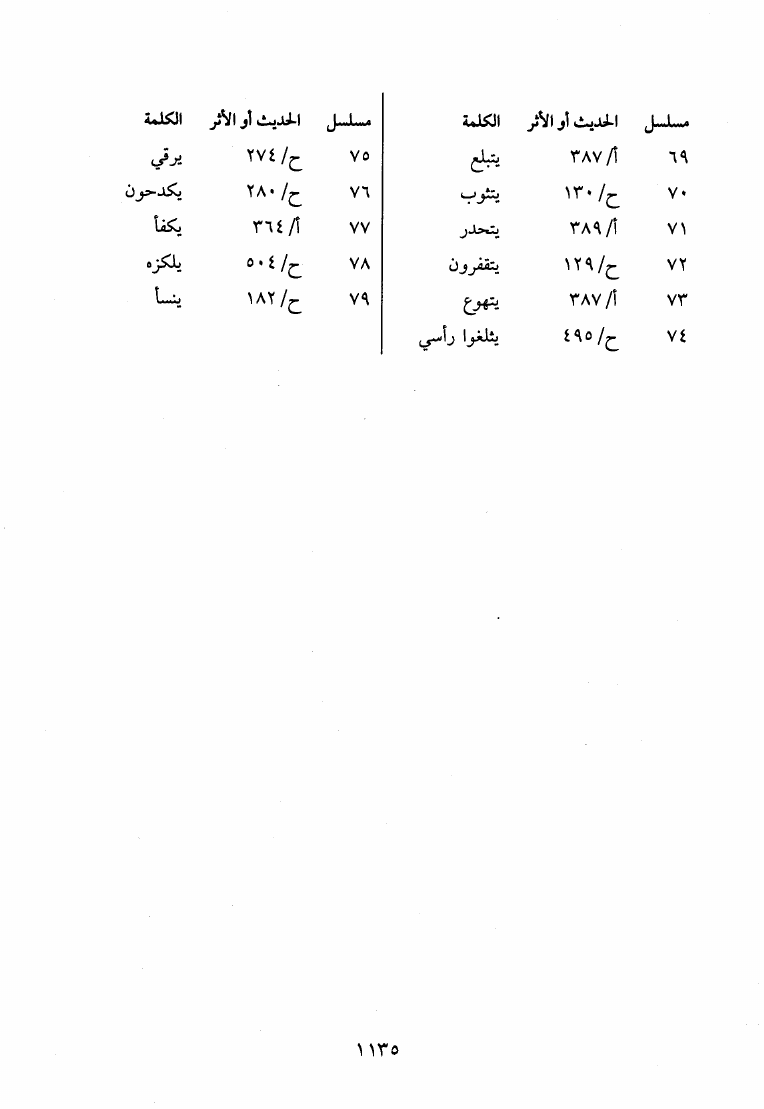 مسلسل الحديث أو الأثر الكلمة
٦٩ أ/ ٣٨٧ يتبلع
٧٠ ح/ ١٣٠ يتثوب
٧١ أ/ ٣٨٩ يتحدر
٧٢ ح/ ١٢٩ يتقفرون
٧٣ أ/ ٣٨٧ يتهوع
٧٤ ح/ ٤٩٥ يثلغوا رأسي
مسلسل الحديث أو الأثر الكلمة
٧٥ ح/ ٢٧٤ يرقي
٧٦ ح/ ٢٨٠ يكدحون
٧٧ أ/ ٣٦٤ يكفأ
٧٨ ح/ ٥٠٤ يلكزه
٧٩ ح/ ١٨٢ ينسأ
١١٣٥